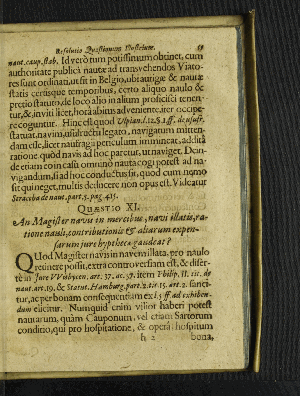 Resolutio Quæstionum Illustrium. 59
naut. caup. stab. Id verò tum potissimum obtinet, cum
authoritate publicâ nautæ ad transvehendos Viato-
res sunt ordinati, ut fit in Belgio, ubi aurigæ & nautæ
statis cerasque temporibus, certo aliquo naulo &
pretio statuto, de loco alio in alium proficisci tenen-
tur, & inviti licet, hora abiens advenerit, iter occipe-
re coguntur. Hinc est quod Ulpian. l. 12. §. 1. ff. de usufr.
statuat, navim, usufructu legato, navigatum mitten-
dam esse, licet naufragii periculum immineat, additâ
ratione quòd navis ad hoc paretur, ut naviget. Den-
de etiam eo in casu omninò nauta cogi potest ad na-
vigandum, si ad hoc conductus sit, quod cum nemo
sit qui neget, multis docere non opus est. Videatur
Straccha de naut. part. 3. pag. 435.
QUÆSTIO XI.
An Magister navis in mercibus, navi illatis, ra-
tione nauli, contributionis & aliarum expen-
sarum jure hypothecæ gaudeat?
QUod Magister navis in navem illata, pro naulo
retinere possit, extra controversiam est, & diser-
tè in Jure Wisbycen. art. 37. ac 57. item Philip. II. tit. de
naut. art. 19. & Statut. Hamburg. part. 2. tit. 15. art. 2. sanci-
tur, ac per bonam consequentiam ex l. 5. ff. ad exhiben-
dum elicitur. Numquid enim vilior haberi potest
nautarum, quàm Cauponum, vel etiam Sartorum
conditio, qui pro hospitatione, & opera hospitum
h 2 bona,